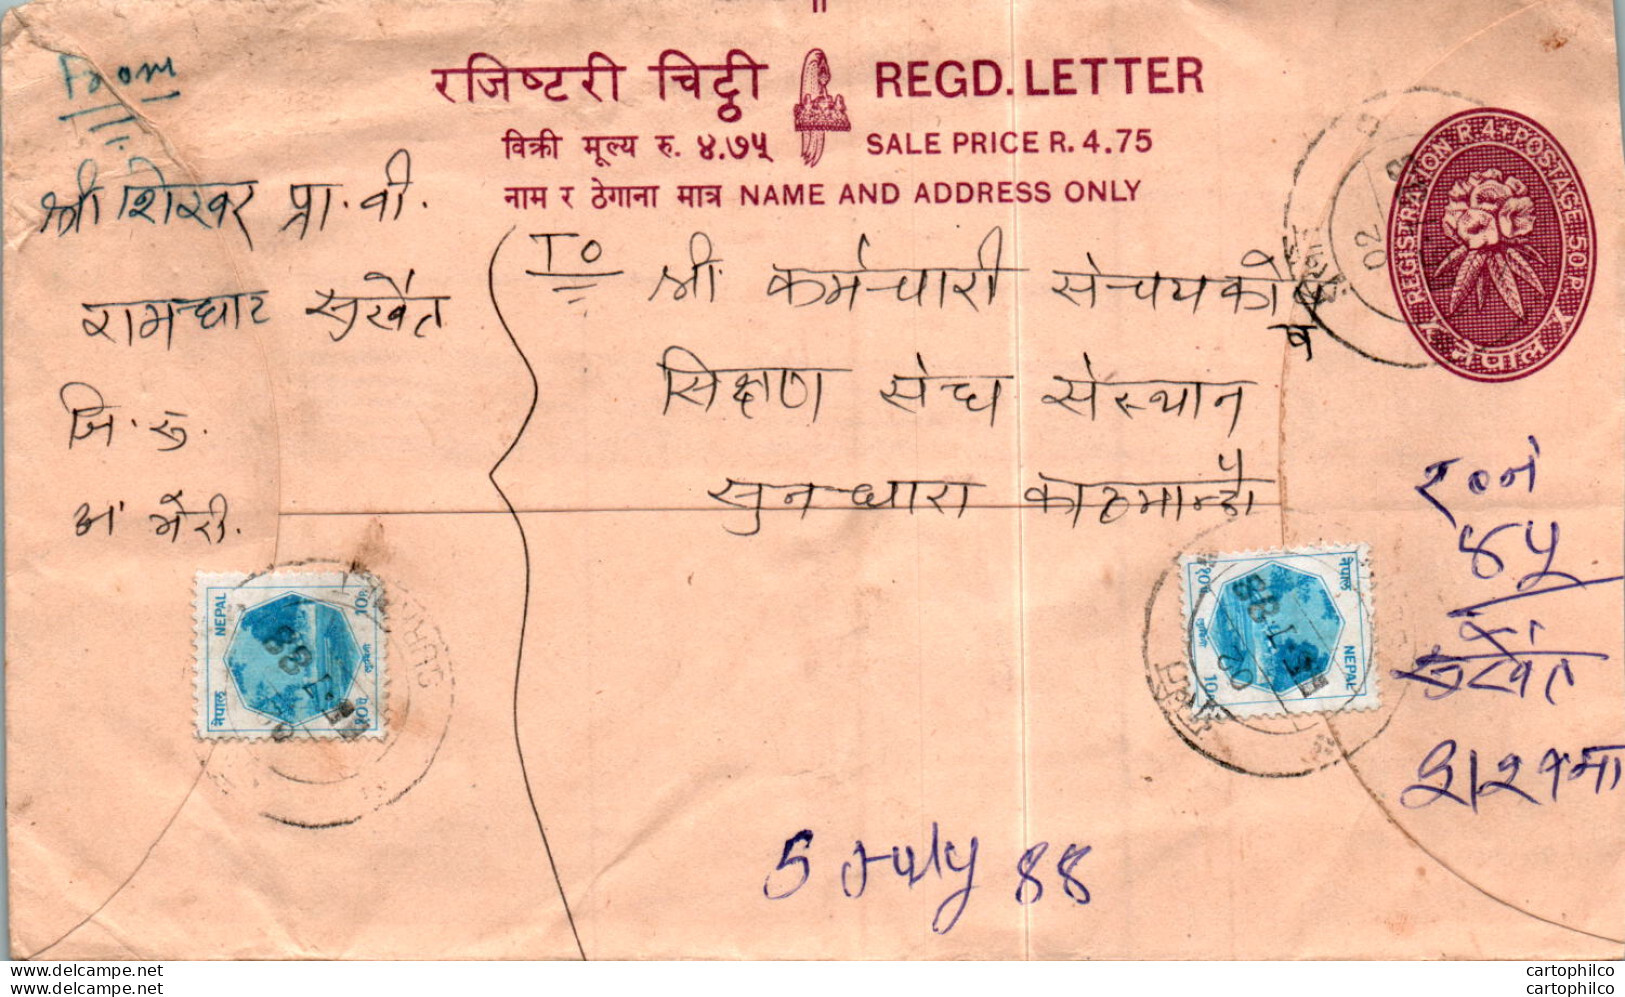 रजिष्टरी चिट्ठी REGD. LETTER
विक्री मूल्य रु. ४.७५ SALE PRICE R. 4.75
नाम र ठेगाना मात्र NAME AND ADDRESS ONLY
REGISTRATION R.4+POSTAGE 50 P.
नेपाल
From
श्री शिखर प्रा. वी.
रामघाट सुर्खेत
जि. सु.
अं भेरी.
TO
श्री कर्मचारी संचयकोष
ष
सिक्षण संघ संस्थान
सुनधारा काठमान्डौ
NEPAL 10P.
नेपाल १०प
लुम्बिनी
NEPAL 10P.
नेपाल १०प
लुम्बिनी
02 7 88
र०नं
४५
सुर्खेत
5 July 88
www.delcampe.net
www.delcampe.net
cartophilco
cartophilco